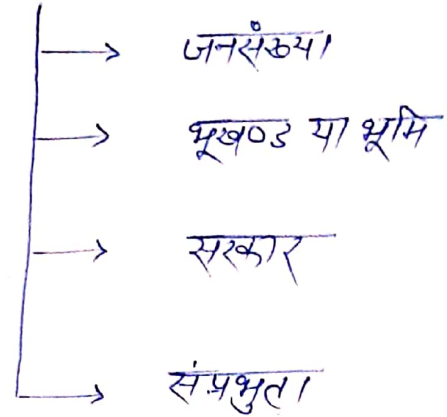 जनसंख्या
भूखण्ड या भूमि
सरकार
संप्रभुता